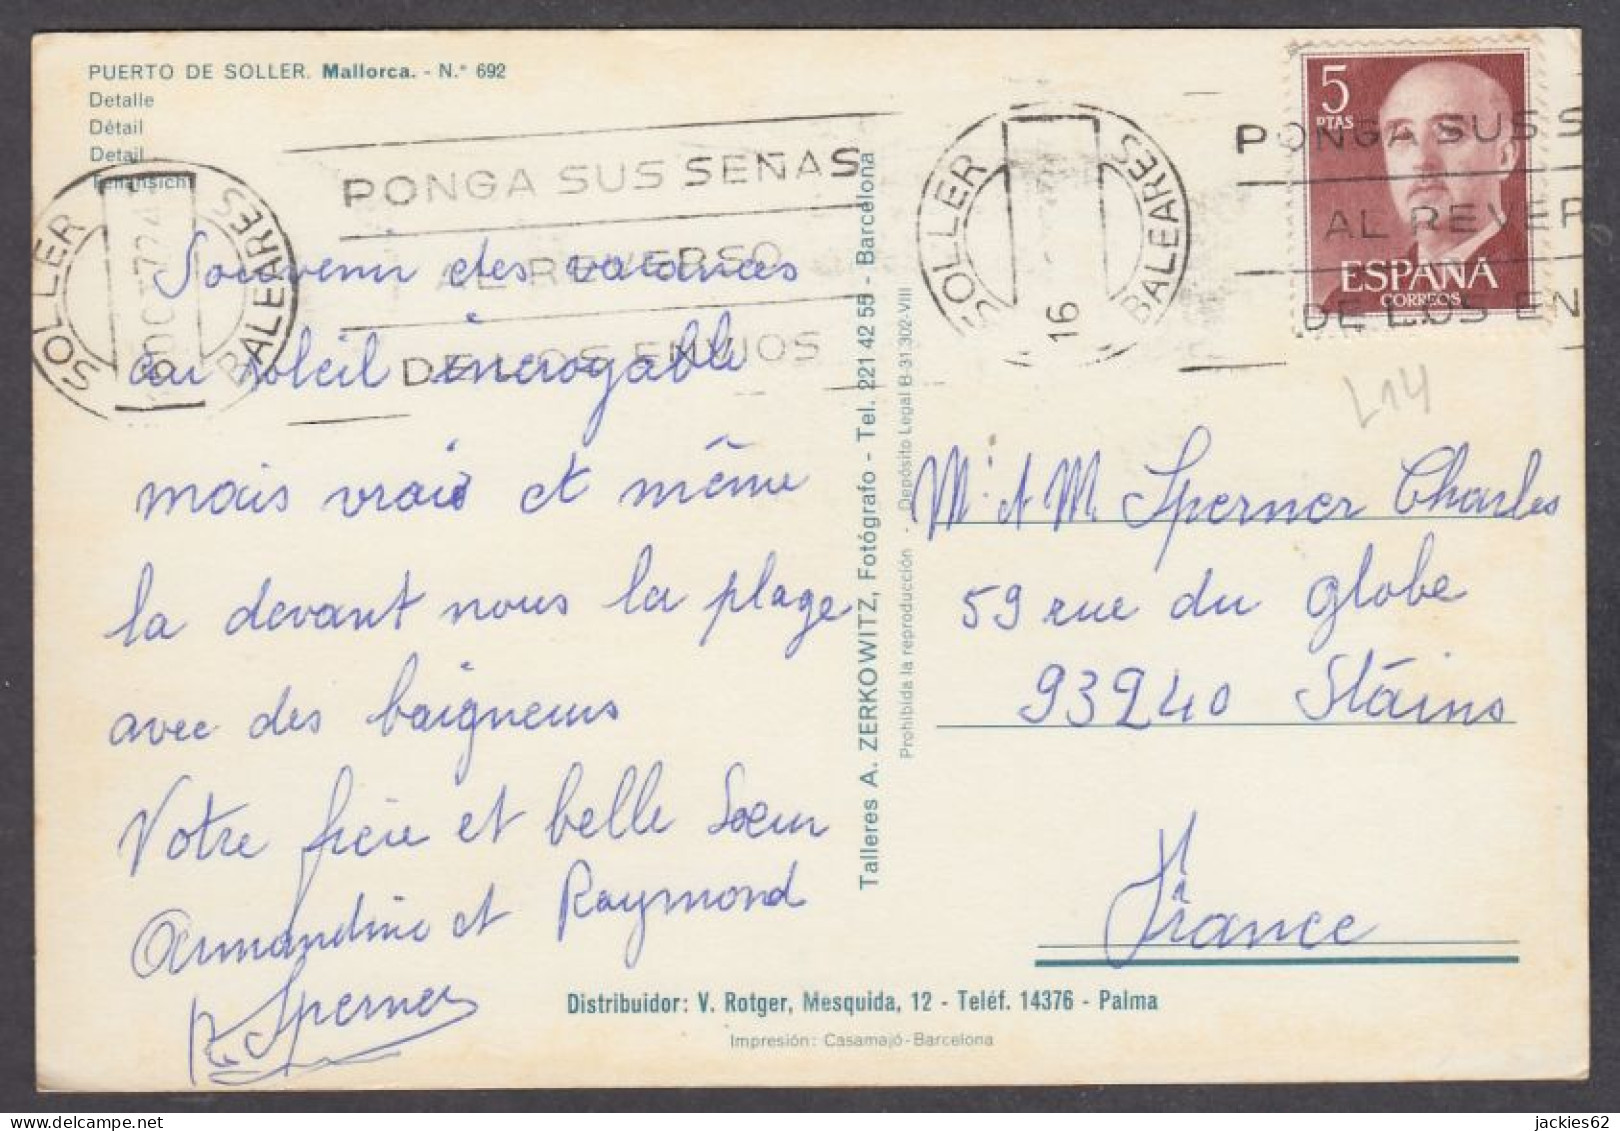 PUERTO DE SOLLER. Mallorca. - N.° 692
Detalle
Détail
Detail
Teilansicht
SOLLER
BALEARES
PONGA SUS SEÑAS
AL REVERSO
DE LOS ENVIOS
Souvenir des vacances
au soleil incroyable
mais vrais et même
la devant nous la plage
avec des baigneurs
Votre frère et belle Soeur
Armandine et Raymond
R Sperner
Talleres A. ZERKOWITZ, Fotógrafo - Tel. 221 42 55 - Barcelona
Prohibida la reproducción - Depósito Legal B 31.302-VIII
SOLLER
BALEARES
16
PONGA SUS S
AL REVER
DE LOS EN
5
PTAS
ESPAÑA
CORREOS
L14
Mr et M. Sperner Charles
59 rue du globe
93240 Stains
France
Distribuidor: V. Rotger, Mesquida, 12 - Teléf. 14376 - Palma
Impresión: Casamajó-Barcelona
jackies62